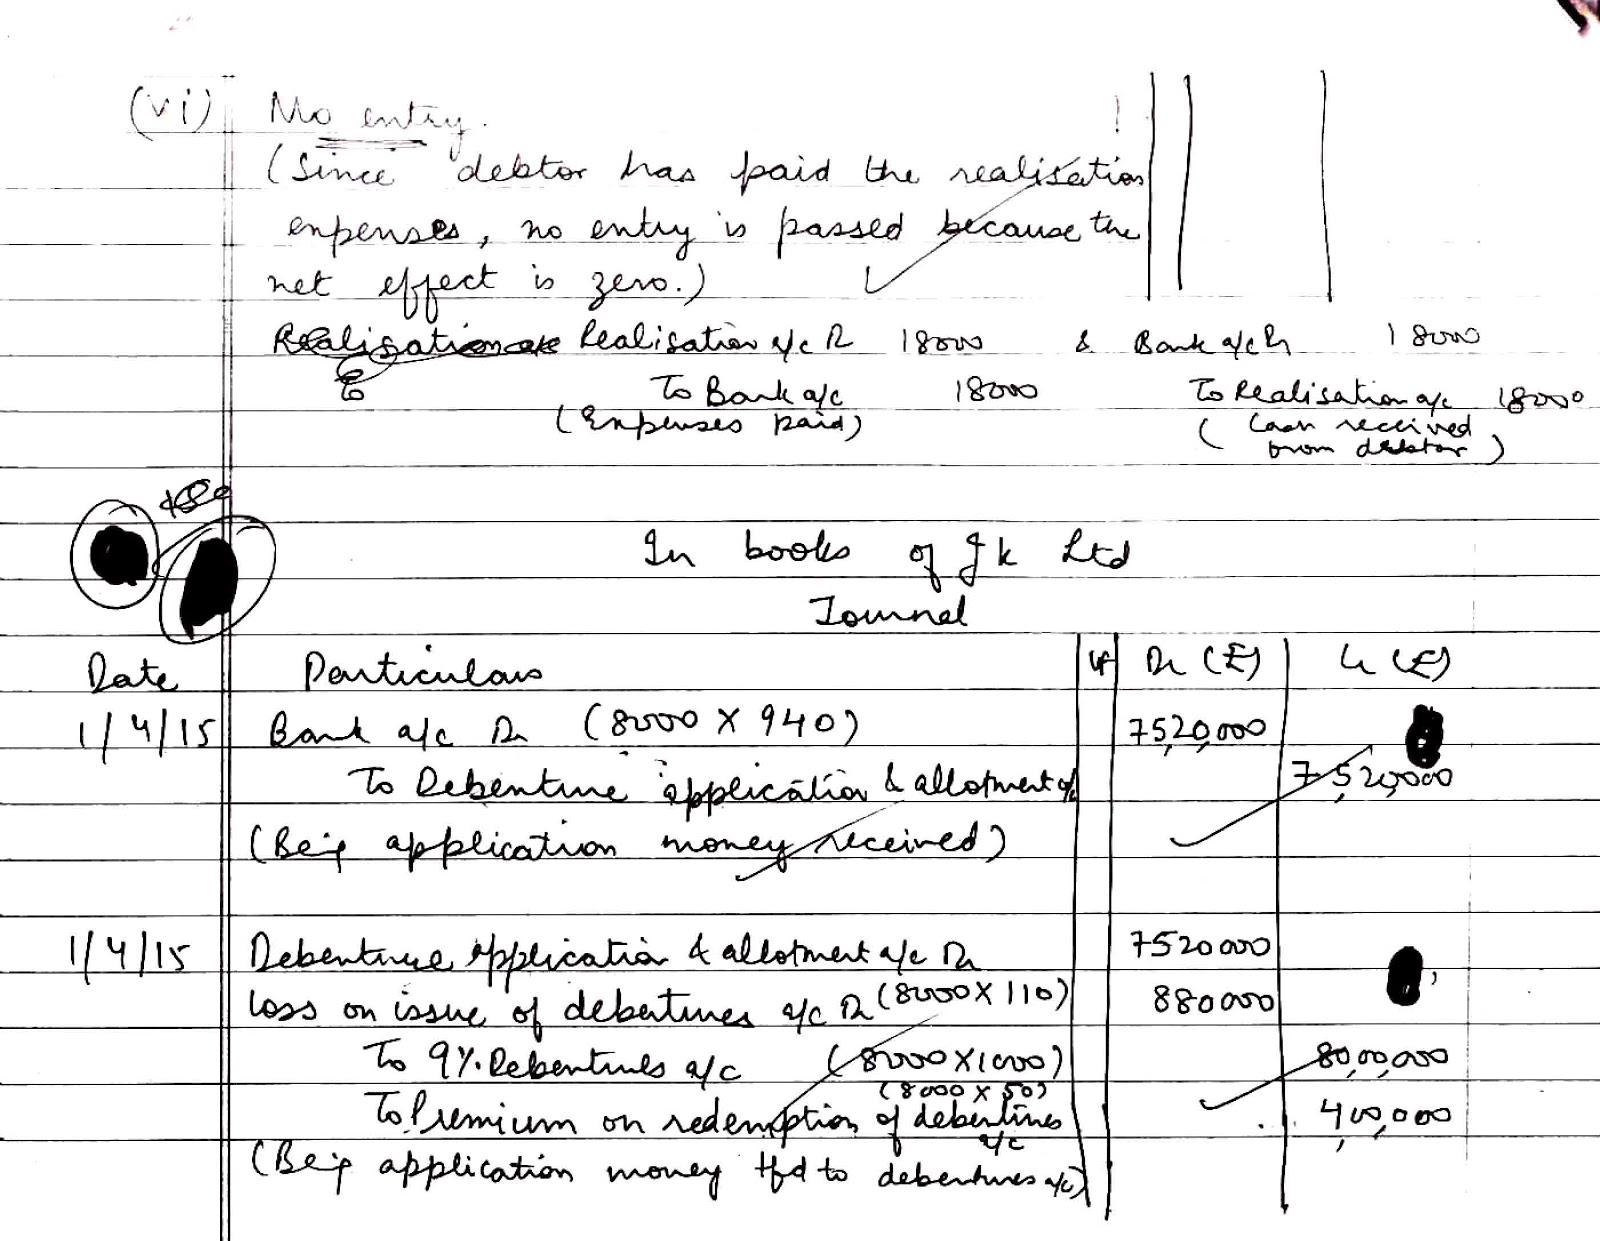 (vi) No entry.
(Since debtor has paid the realisation
expenses, no entry is passed because the
net effect is zero.)
Realisation a/c Dr 18000 & Bank a/c Dr 18000
To To Bank a/c 18000 To Realisation a/c 18000
(Expenses paid) (Cash received
from debtor)
In books of JK Ltd
Journal
Date Particulars LF Dr (₹) Cr (₹)
1/4/15 Bank a/c Dr (8000 X 940) 75,20,000
To Debenture application & allotment a/c 7,520,000
(Being application money received)
1/4/15 Debenture application & allotment a/c Dr 7520000
loss on issue of debentures a/c Dr (8000 X 110) 880000
To 9% Debentures a/c (8000 X 1000) 80,00,000
(8000 X 50)
To Premium on redemption of debentures 4,00,000
a/c
(Being application money tfd to debentures a/c)